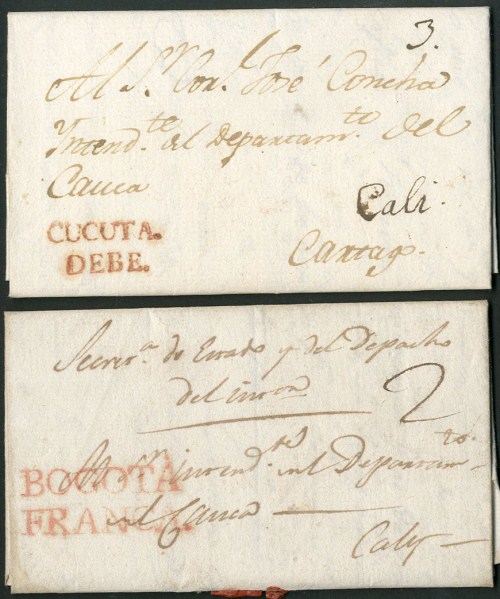 3.
Al S.r Cor.l José Concha
Yntend.te del Departam.te del
Cauca
Cali.
CUCUTA.
DEBE.
Cartag.
Secret.a de Estado y del Despacho
del
2
Al S.r intend.te del Departam.to
del Cauca
BOGOTA
FRANCA.
Caly